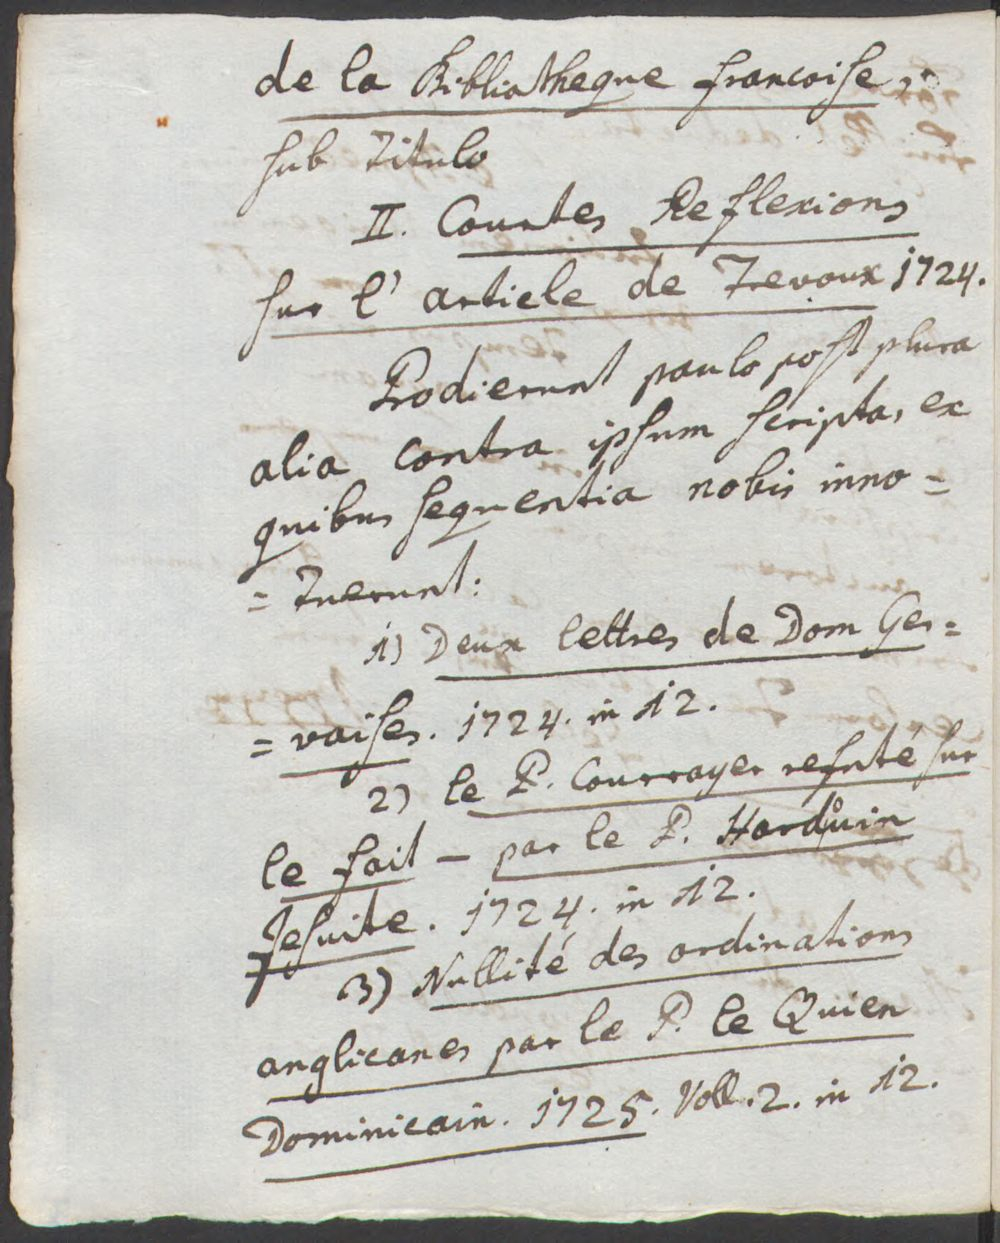 de la Bibliotheque francoise,
sub Titulo
II. Courtes Reflexions
sur l' article de Trevoux 1724.
Prodierunt paulo post plura
alia contra ipsum scripta, ex
quibus sequentia nobis inno =
= tuerunt:
1) Deux lettres de Dom Ger=
= vaises. 1724. in 12.
2) le P. Courrayer refuté sur
le fait - par le P. Harduin
Jesuite. 1724. in 12.
3) Nullité des ordinations
anglicanes par le P. le Quien
Dominicain. 1725. Voll. 2. in 12.